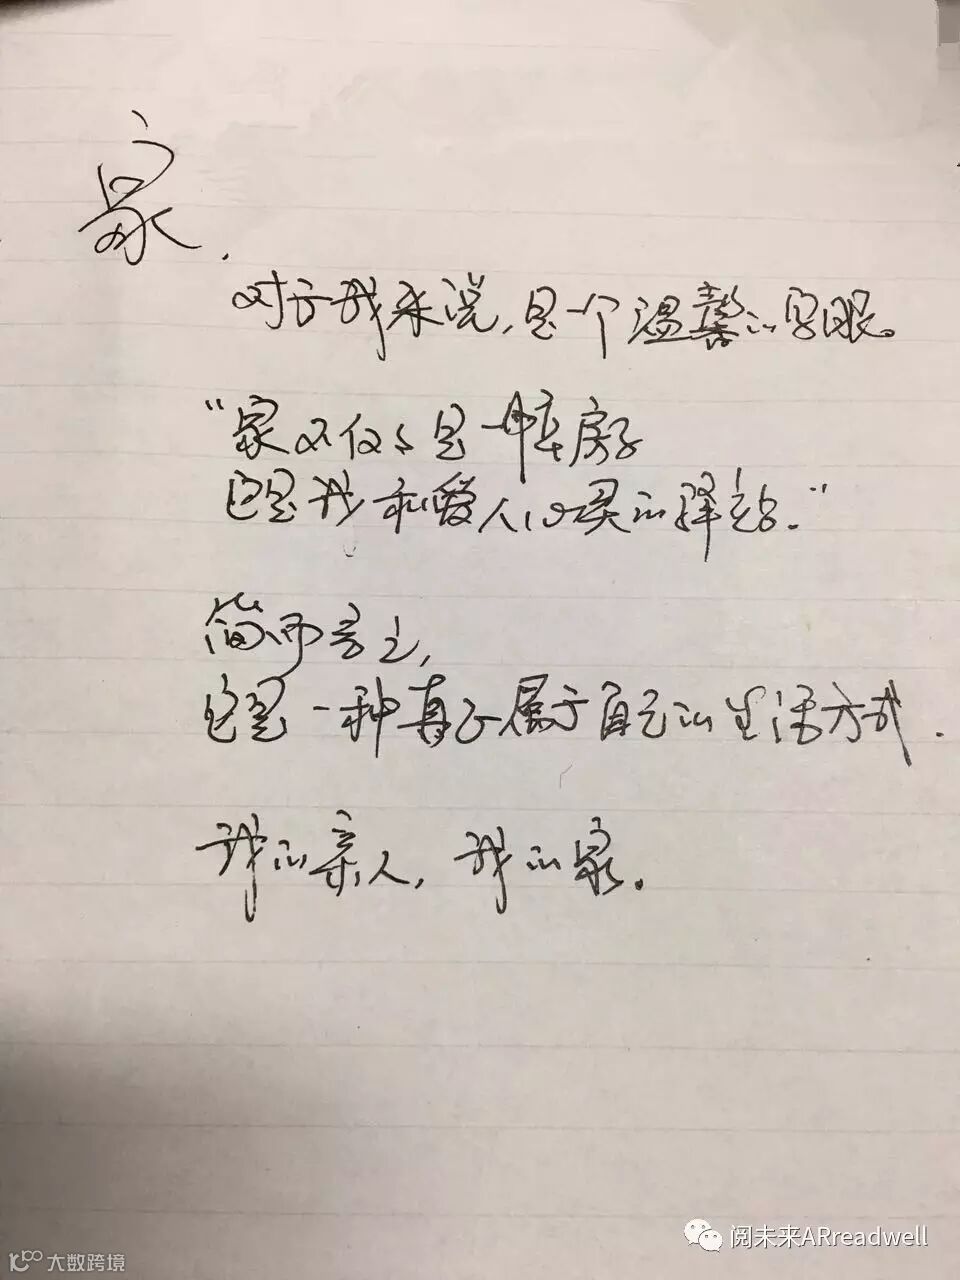 家.
对于我来说,是一个温馨的字眼。
“家不仅仅是一幢房子
它是我和爱人心灵的驿站.”
简而言之,
它是一种真正属于自己的生活方式.
我的亲人,我的家.
阅未来ARreadwell
大数跨境